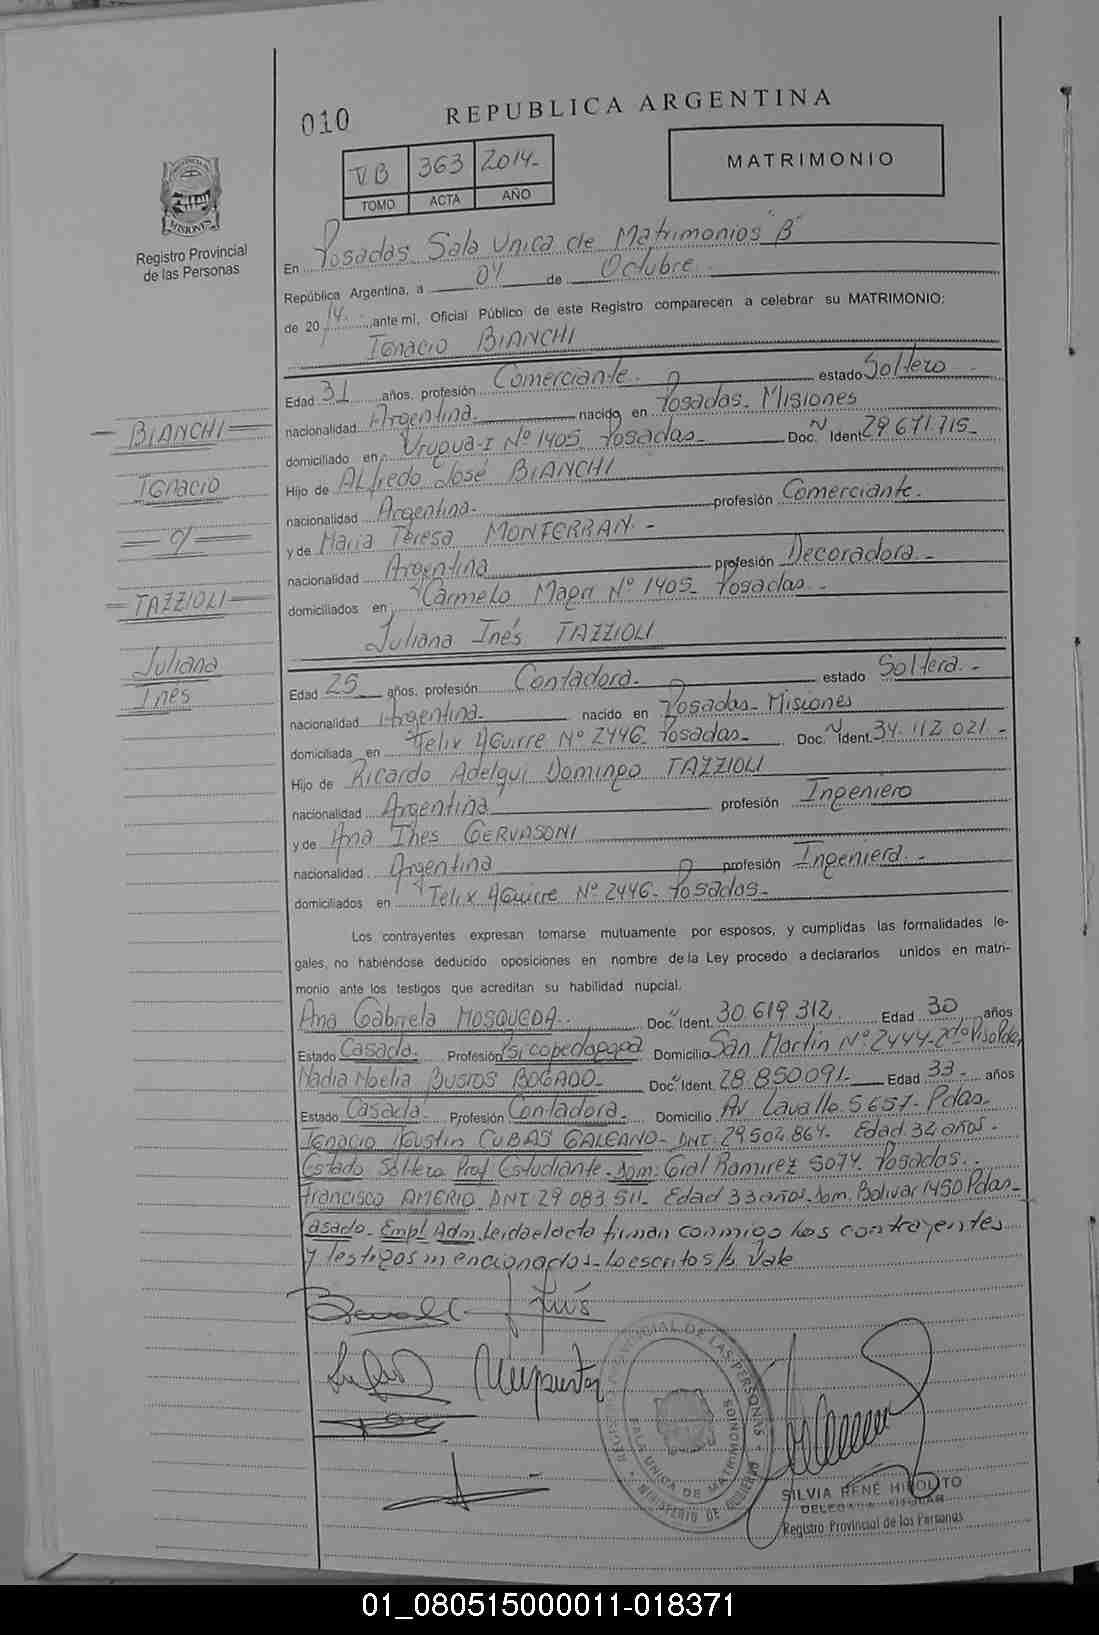 010
REPUBLICA ARGENTINA
V.B 363 2014-
TOMO ACTA AÑO
MATRIMONIO
PROVINCIA DE
MISIONES
Registro Provincial
de las Personas
En Posadas Sala Unica de Matrimonios "B"
República Argentina, a 04 de Octubre
de 2014 ante mi, Oficial Público de este Registro comparecen a celebrar su MATRIMONIO:
Ignacio BIANCHI
Edad 31 años, profesión Comerciante. estado Soltero
nacionalidad Argentina nacido en Posadas. Misiones
domiciliado en Urugua-I Nº 1405. Posadas Doc. N Ident 29 671 715-
Hijo de Alfredo José BIANCHI
nacionalidad Argentina profesión Comerciante.
y de Maria Teresa MONFERRAN-
nacionalidad Argentina profesión Decoradora-
domiciliados en Carmelo Magri Nº 1405 Posadas-
Juliana Inés TAZZIOLI
Edad 25 años, profesión Contadora. estado Soltera-
nacionalidad Argentina nacido en Posadas- Misiones
domiciliada en Felix Aguirre Nº 2446 Posadas- Doc. N Ident. 34.112.021-
Hijo de Ricardo Adelqui Domingo TAZZIOLI
nacionalidad Argentina profesión Ingeniero
y de Ana Ines GERVASONI
nacionalidad Argentina profesión Ingeniera-
domiciliados en Felix Aguirre Nº 2446- Posadas-
Los contrayentes expresan tomarse mutuamente por esposos, y cumplidas las formalidades le-
gales, no habiéndose deducido oposiciones en nombre de la Ley procedo a declararlos unidos en matri-
monio ante los testigos que acreditan su habilidad nupcial.
Ana Gabriela MOSQUEDA. Doc. N Ident. 30.619.312. Edad 30 años
Estado Casada. Profesión Psicopedagoga Domicilio San Martin Nº 2444-2do Piso Pdas
Nadia Noelia BUSTOS BOGADO- Doc. N Ident. 28.850.091- Edad 33- años
Estado Casada. Profesión Contadora. Domicilio Av Lavalle 5657- Pdas-
Ignacio Agustin CUBAS GALEANO- DNI. 29.502.864. Edad 32 años.
Estado Soltero Prof. Estudiante. Dom: Gral Ramirez 5074. Posadas.
Francisco AMERIO DNI 29.083.511- Edad 33 años. Dom. Bolivar 1450 Pdas-
Casado- Empl Adm. Leida el acta firman conmigo los contrayentes
y testigos mencionados- Lo escrito s/b Vale
BIANCHI
Ignacio
c/
TAZZIOLI
Juliana
Inés
REGISTRO PROVINCIAL DE LAS PERSONAS
SALA UNICA DE MATRIMONIOS
MINISTERIO DE GOBIERNO
SILVIA RENÉ HIPOLITO
DELEGADA TITULAR
Registro Provincial de las Personas
01_080515000011-018371